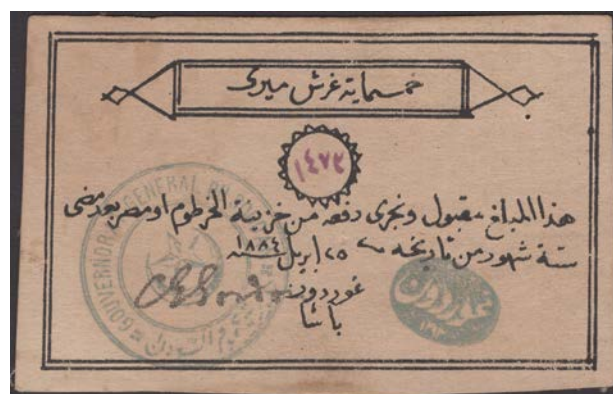 خمسماية غرش ميرى
١٤٧٢
هذا المبلغ مقبول ونجرى دفعه من خزينة الخرطوم او مصر بعد مضى
ستة شهور من تاريخه ٢٥ ابريل سنة ١٨٨٤
غوردون
باشا
GOUVERNORAT GENERAL DU
السودان
غوردون